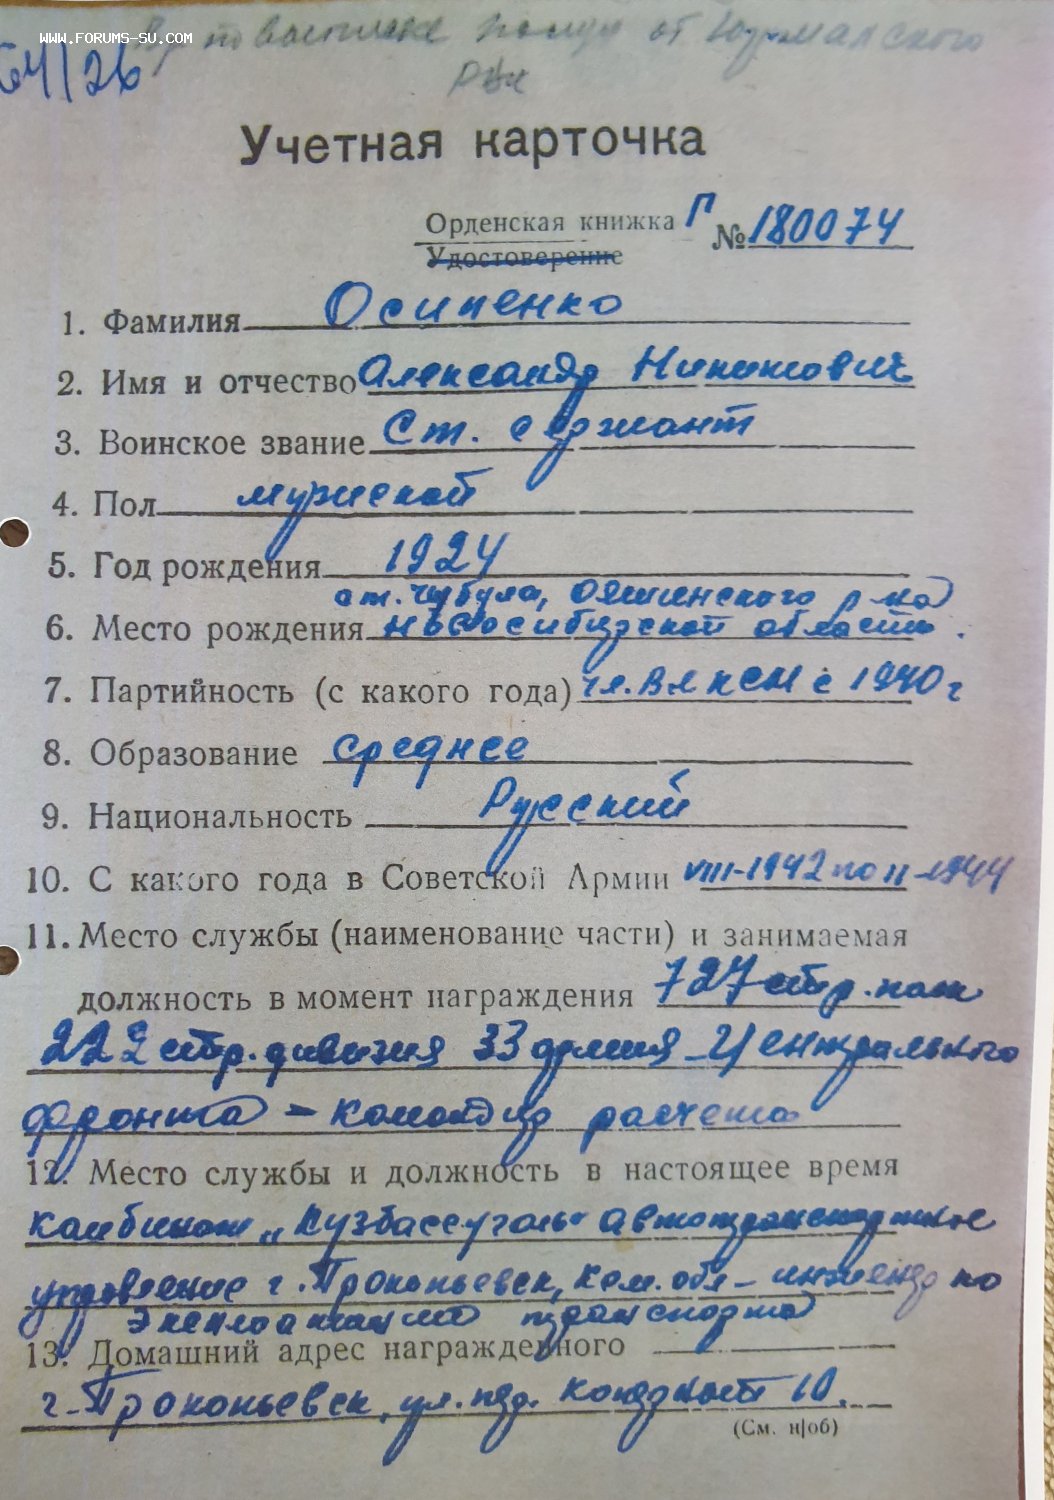 www.forums-su.com
от Юрмалского
64/26
Учетная карточка
Орденская книжка Г № 180074
Удостоверение
1. Фамилия Осипенко
2. Имя и отчество Александр Никитович
3. Воинское звание Ст. сержант
4. Пол мужской
5. Год рождения 1924
ст. Чебула, Ояшинского р-на
6. Место рождения Новосибирской области.
7. Партийность (с какого года) чл. ВЛКСМ с 1940 г
8. Образование среднее
9. Национальность Русский
10. С какого года в Советской Армии VIII-1942 по II-1944
11. Место службы (наименование части) и занимаемая
должность в момент награждения 727 стр. полк
222 стр. дивизия 33 армия Центрального
фронта - командир расчета
12. Место службы и должность в настоящее время
комбинат „Кузбассуголь" автотранспортное
управление г. Прокопьевск, Кем. обл - инженер по
эксплоатации транспорта
13. Домашний адрес награжденного
г. Прокопьевск, ул. 10.
(См. н|об)